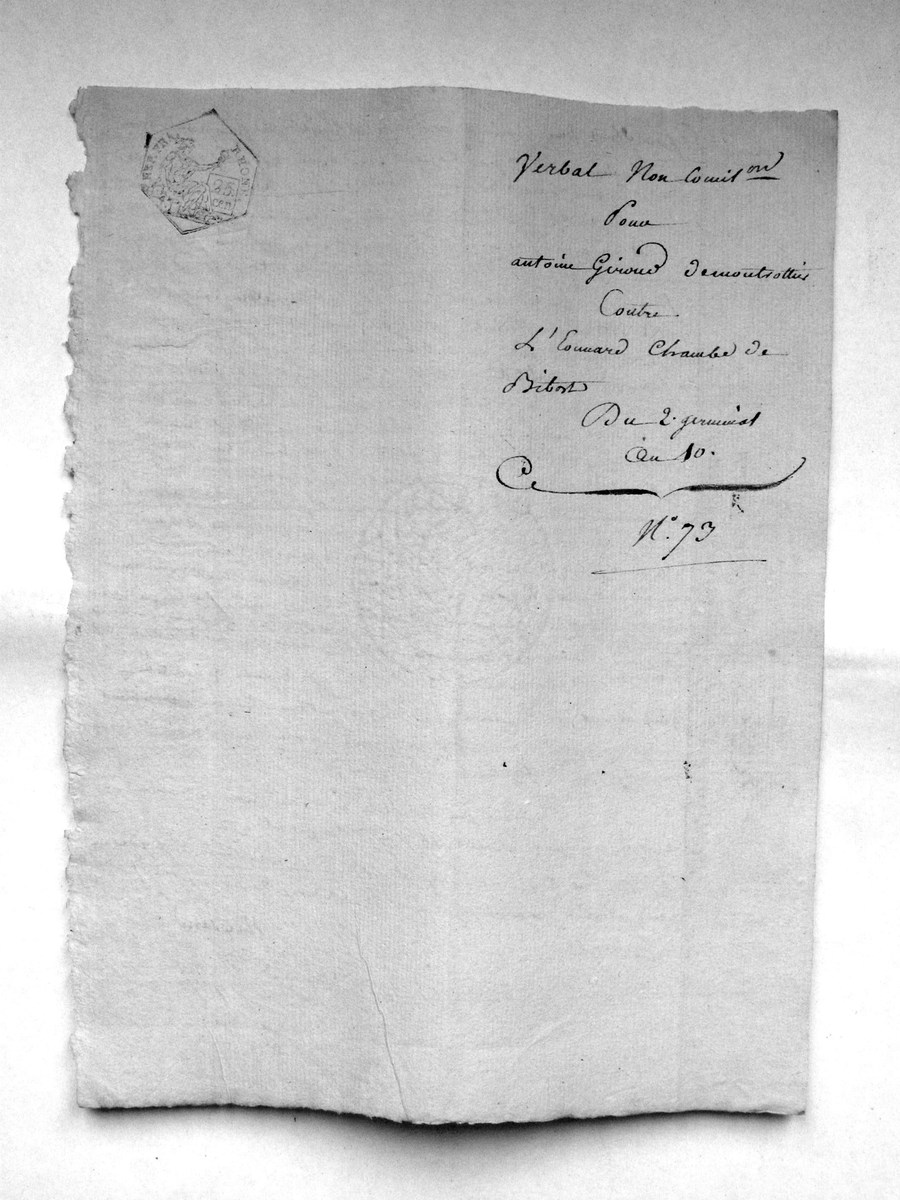 REP. FRA
25
cen
Verbal Non Concil.on
Pour
antoine Giroud demontsottier
Contre
L'Eonnard Chambe de
Bibost
Du 2. germinal
an 10.
N.° 73